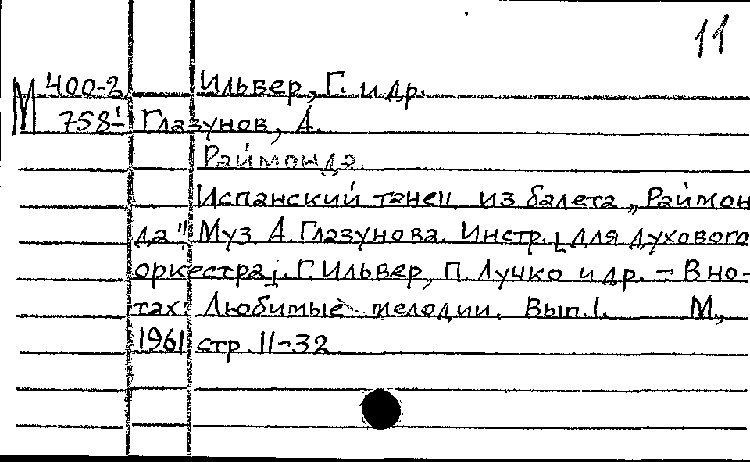 11
М 400-2 Ильвер, Г. и др.
758- Глазунов, А.
Раймонда.
Испанский танец из балета „Раймон
да" Муз А. Глазунова. Инстр. [для духового
оркестра]. Г. Ильвер, П. Лучко и др. – В но-
тах: Любимые мелодии. Вып. 1. М.,
1961 стр. 11-32